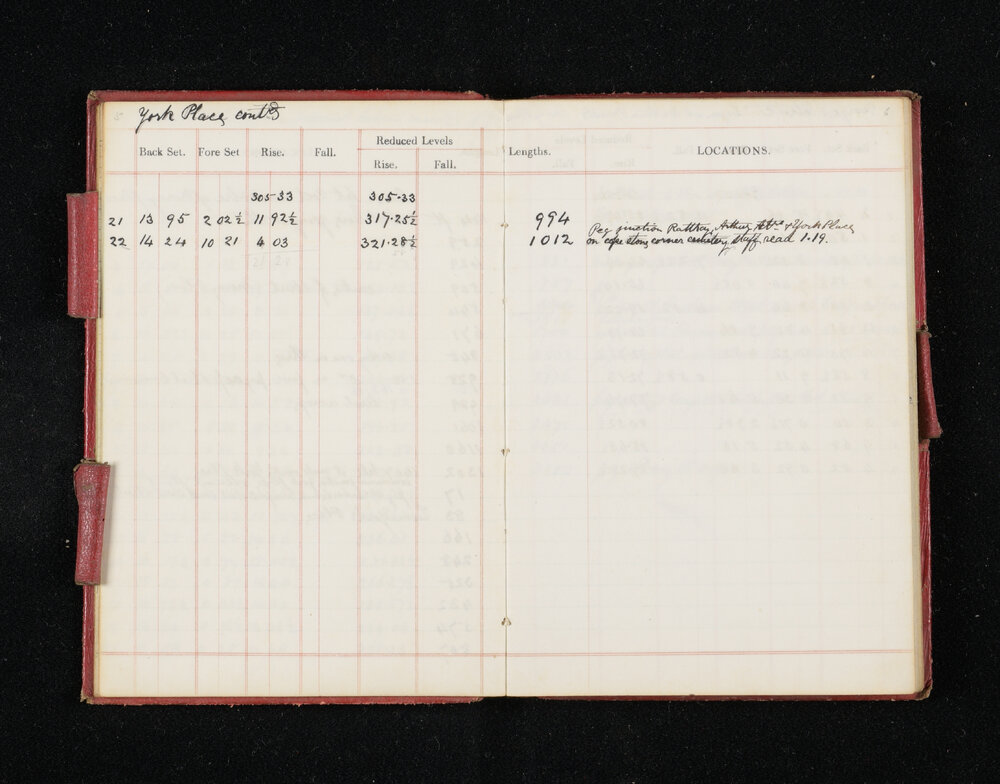 York Place contd
Reduced Levels
Back Set. Fore Set Rise. Fall. Lengths. LOCATIONS.
Rise. Fall.
305·33 305·33
21 13 95 2 02½ 11 92½ 317·25½ 994 Peg junction Rattray, Arthur Sts & York Place
22 14 24 10 21 4 03 321·28½ 1012 on cope stone corner cemetery, staff read 1.19.